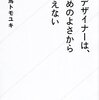 デザイナーは、
ためのよさから
えない
馬トモユキ